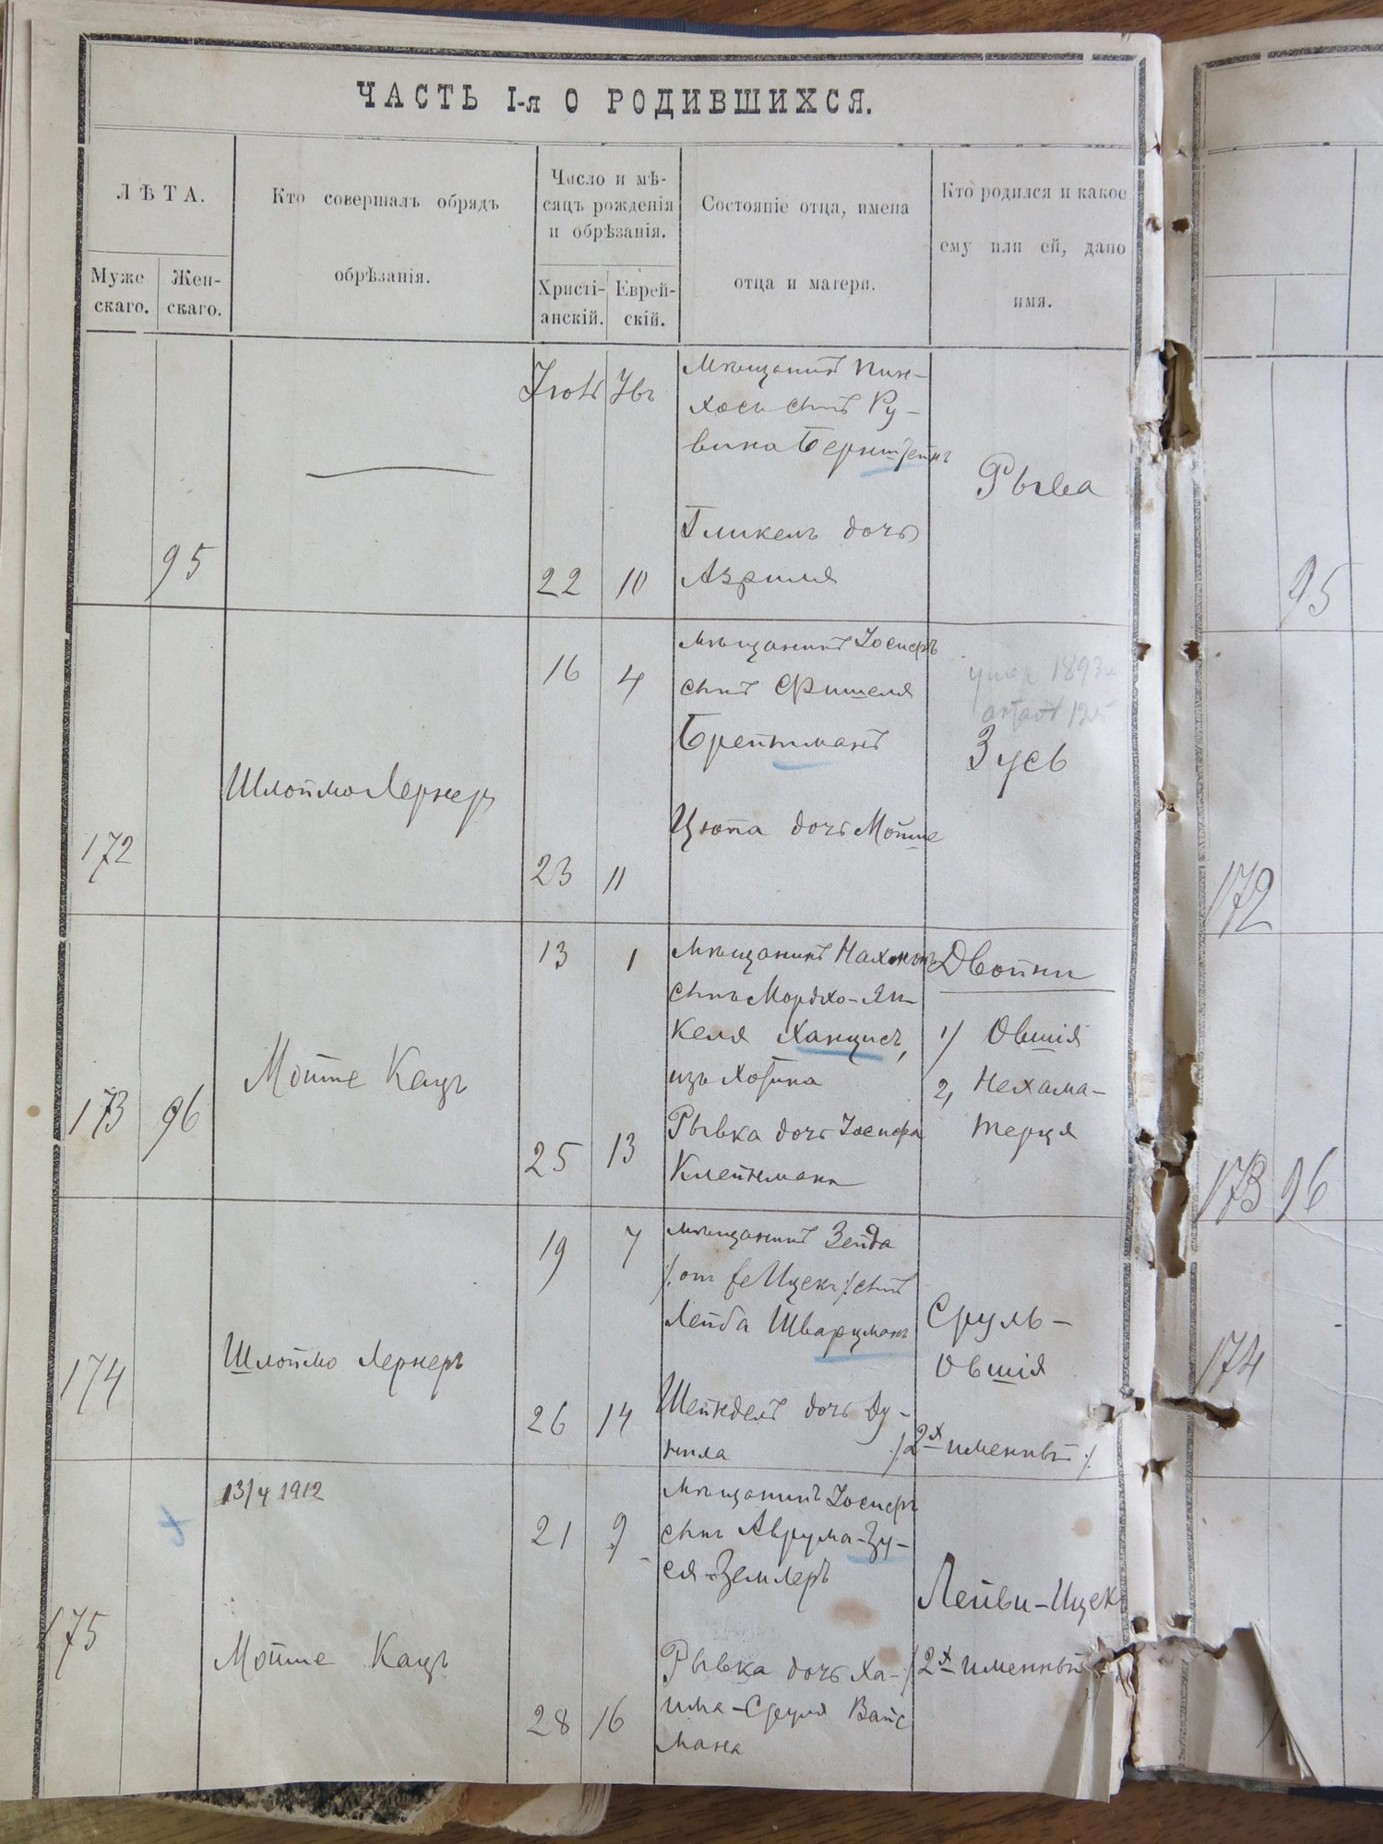 ЧАСТЬ I-я О РОДИВШИХСЯ.
ЛѢТА.
Муже
скаго.
Жен-
скаго.
Кто совершалъ обрядъ
обрѣзанія.
Число и мѣ-
сяцъ рожденія
и обрѣзанія.
Христі-
анскій.
Еврей-
скій.
Состояніе отца, имена
отца и матери.
Кто родился и какое
ему или ей, дано
имя.
95
22
10
Мѣщанинъ Пин-
хосъ сынъ Ру-
вина Бернштейнъ
Гликель дочь
Азриля
Рывка
95
172
Шлоймо Лернеръ
16
4
23
11
мѣщанинъ Іосифъ
сынъ Фишеля
Брейтманъ
Цюпа дочь Мойше
умер 1893
Зусь
172
173
96
Мойше Кацъ
13
1
25
13
Мѣщанинъ Нахманъ
сынъ Мордхо-Ян-
келя Ханцисъ,
изъ Хотина
Рывка дочь Іосифа
Клейнмана
Двойни
1) Овшія
2, Нехама-
Терця
173
96
174
Шлоймо Лернеръ
19
7
26
14
мѣщанинъ Зейда
Ицекъ ./ сынъ
Лейба Шварцманъ
Шейндель дочь Ду-
нила
Сруль-
Овшія
/. 2х именный ./
174
175
13/4 1912
Мойше Кацъ
21
9
28
16
Мѣщанинъ Іосифъ
сынъ Аврума-Зу-
ся Землеръ
Рывка дочь Ха-
има-Сруля Вайс
мана
Лейви-Ицек
/ 2х именный